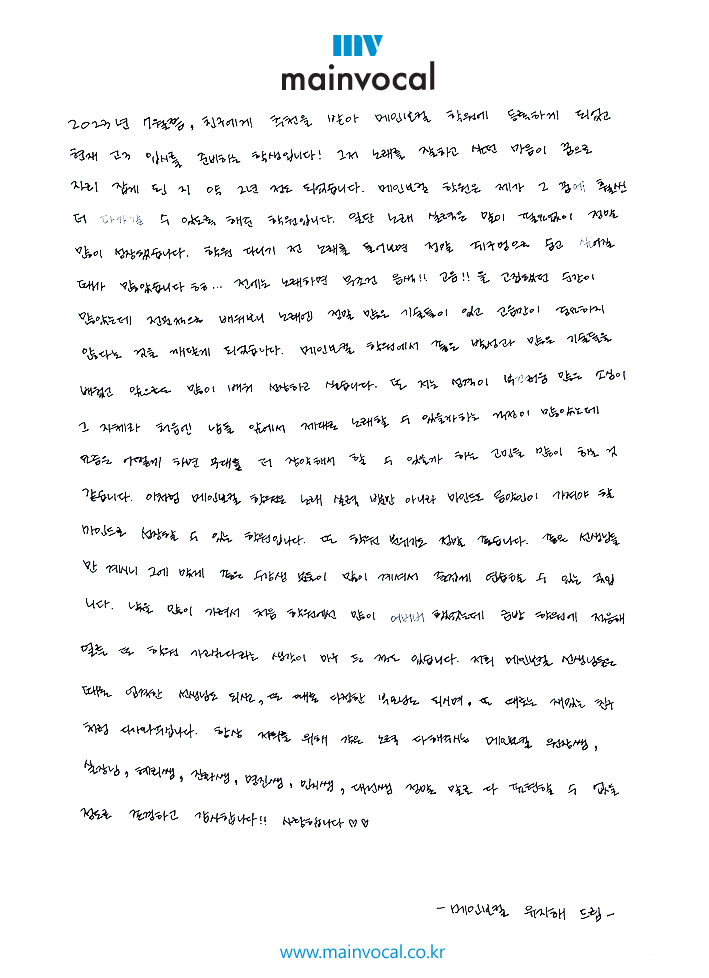 mv
mainvocal
2023년 7월쯤, 친구에게 추천을 받아 메인보컬 학원에 등록하게 되었고
현재 고3 입시를 준비하는 학생입니다! 그저 노래를 잘하고 싶던 마음이 꿈으로
자리 잡게 된 지 약 2년 정도 되었습니다. 메인보컬 학원은 제가 그 꿈에 훨씬
더 다가갈 수 있도록 해준 학원입니다. 일단 노래 실력은 말이 필요없이 정말
많이 성장했습니다. 학원 다니기 전 노래를 들어보면 정말 쥐구멍으로 숨고 싶어질
때가 많았습니다 ㅎㅎ... 전에는 노래하면 무조건 음색!! 고음!! 을 고집했던 순간이
많았는데 전문적으로 배워보니 노래엔 정말 많은 기술들이 있고 고음만이 중요하지
않다는 것을 깨닫게 되었습니다. 메인보컬 학원에서 좋은 발성과 많은 기술들을
배웠고 앞으로도 많이 배워 성장하고 싶습니다. 또 저는 성격이 부끄러움 많은 소심이
그 자체라 처음엔 남들 앞에서 제대로 노래할 수 있을까하는 걱정이 많았는데
요즘은 어떻게 하면 무대를 더 장악해서 할 수 있을까 하는 고민을 많이 하는 것
같습니다. 이처럼 메인보컬 학원은 노래 실력 뿐만 아니라 마인드도 음악인이 가져야 할
마인드로 성장할 수 있는 학원입니다. 또 학원 분위기도 정말 좋습니다. 좋은 선생님들
만 계시니 그에 맞게 좋은 수강생 분들이 많이 계셔서 즐겁게 연습할 수 있는 곳입
니다. 낯을 많이 가려서 처음 학원에선 많이 어버버 했었는데 금방 학원에 적응해
얼른 또 학원 가고싶다라는 생각이 마구 드는 정도 있습니다. 저희 메인보컬 선생님들은
때론 엄격한 선생님도 되시고, 또 때론 다정한 부모님도 되시며, 또 때로는 재밌는 친구
처럼 다가와주십니다. 항상 저희를 위해 같은 노력 다해주시는 메인보컬 원장쌤,
실장님, 혜리쌤, 진화쌤, 명진쌤, 민지쌤, 대선쌤 정말 말로 다 표현할 수 없을
정도로 존경하고 감사합니다!! 사랑합니다♡♡
- 메인보컬 유지해 드림 -
www.mainvocal.co.kr